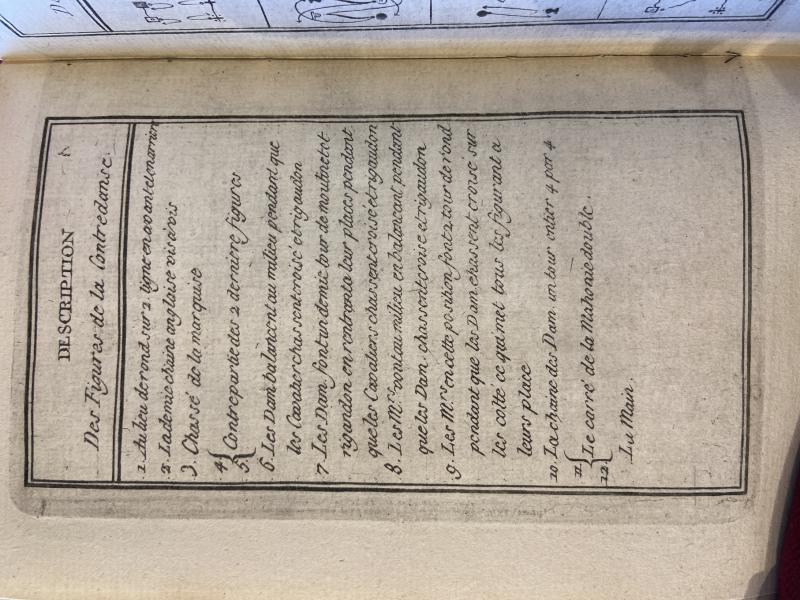 DESCRIPTION
Des Figures de la Contredanse.
1. Au lieu de rond sur 2 ligne en avant et en arriere
2. La demie chaine anglaise vis à vis
3. Chassé de la marquise
4
5 { Contrepartie des 2 derniere figures
6. Les Dam. balancent au milieu pendant que
les Cavalier chassent croisé et rigaudon
7. Les Dam. font un demie tour de moulinet et
rigaudon en rentrant a leur places pendant
que les Cavaliers chassent croise et rigaudon
8. Les M.rs vont au milieu en balancant pendant
que les Dam. chassent croise et rigaudon
9. Les M.rs en cette position font 2 tour de rond
pendant que les Dam. chassent croise sur
les coltte ce qui met tous les figurant a
leurs place
10. La chaine des Dam. un tour entier 4 par 4
11
12 { Le carré de la Mahonie double.
La Main.